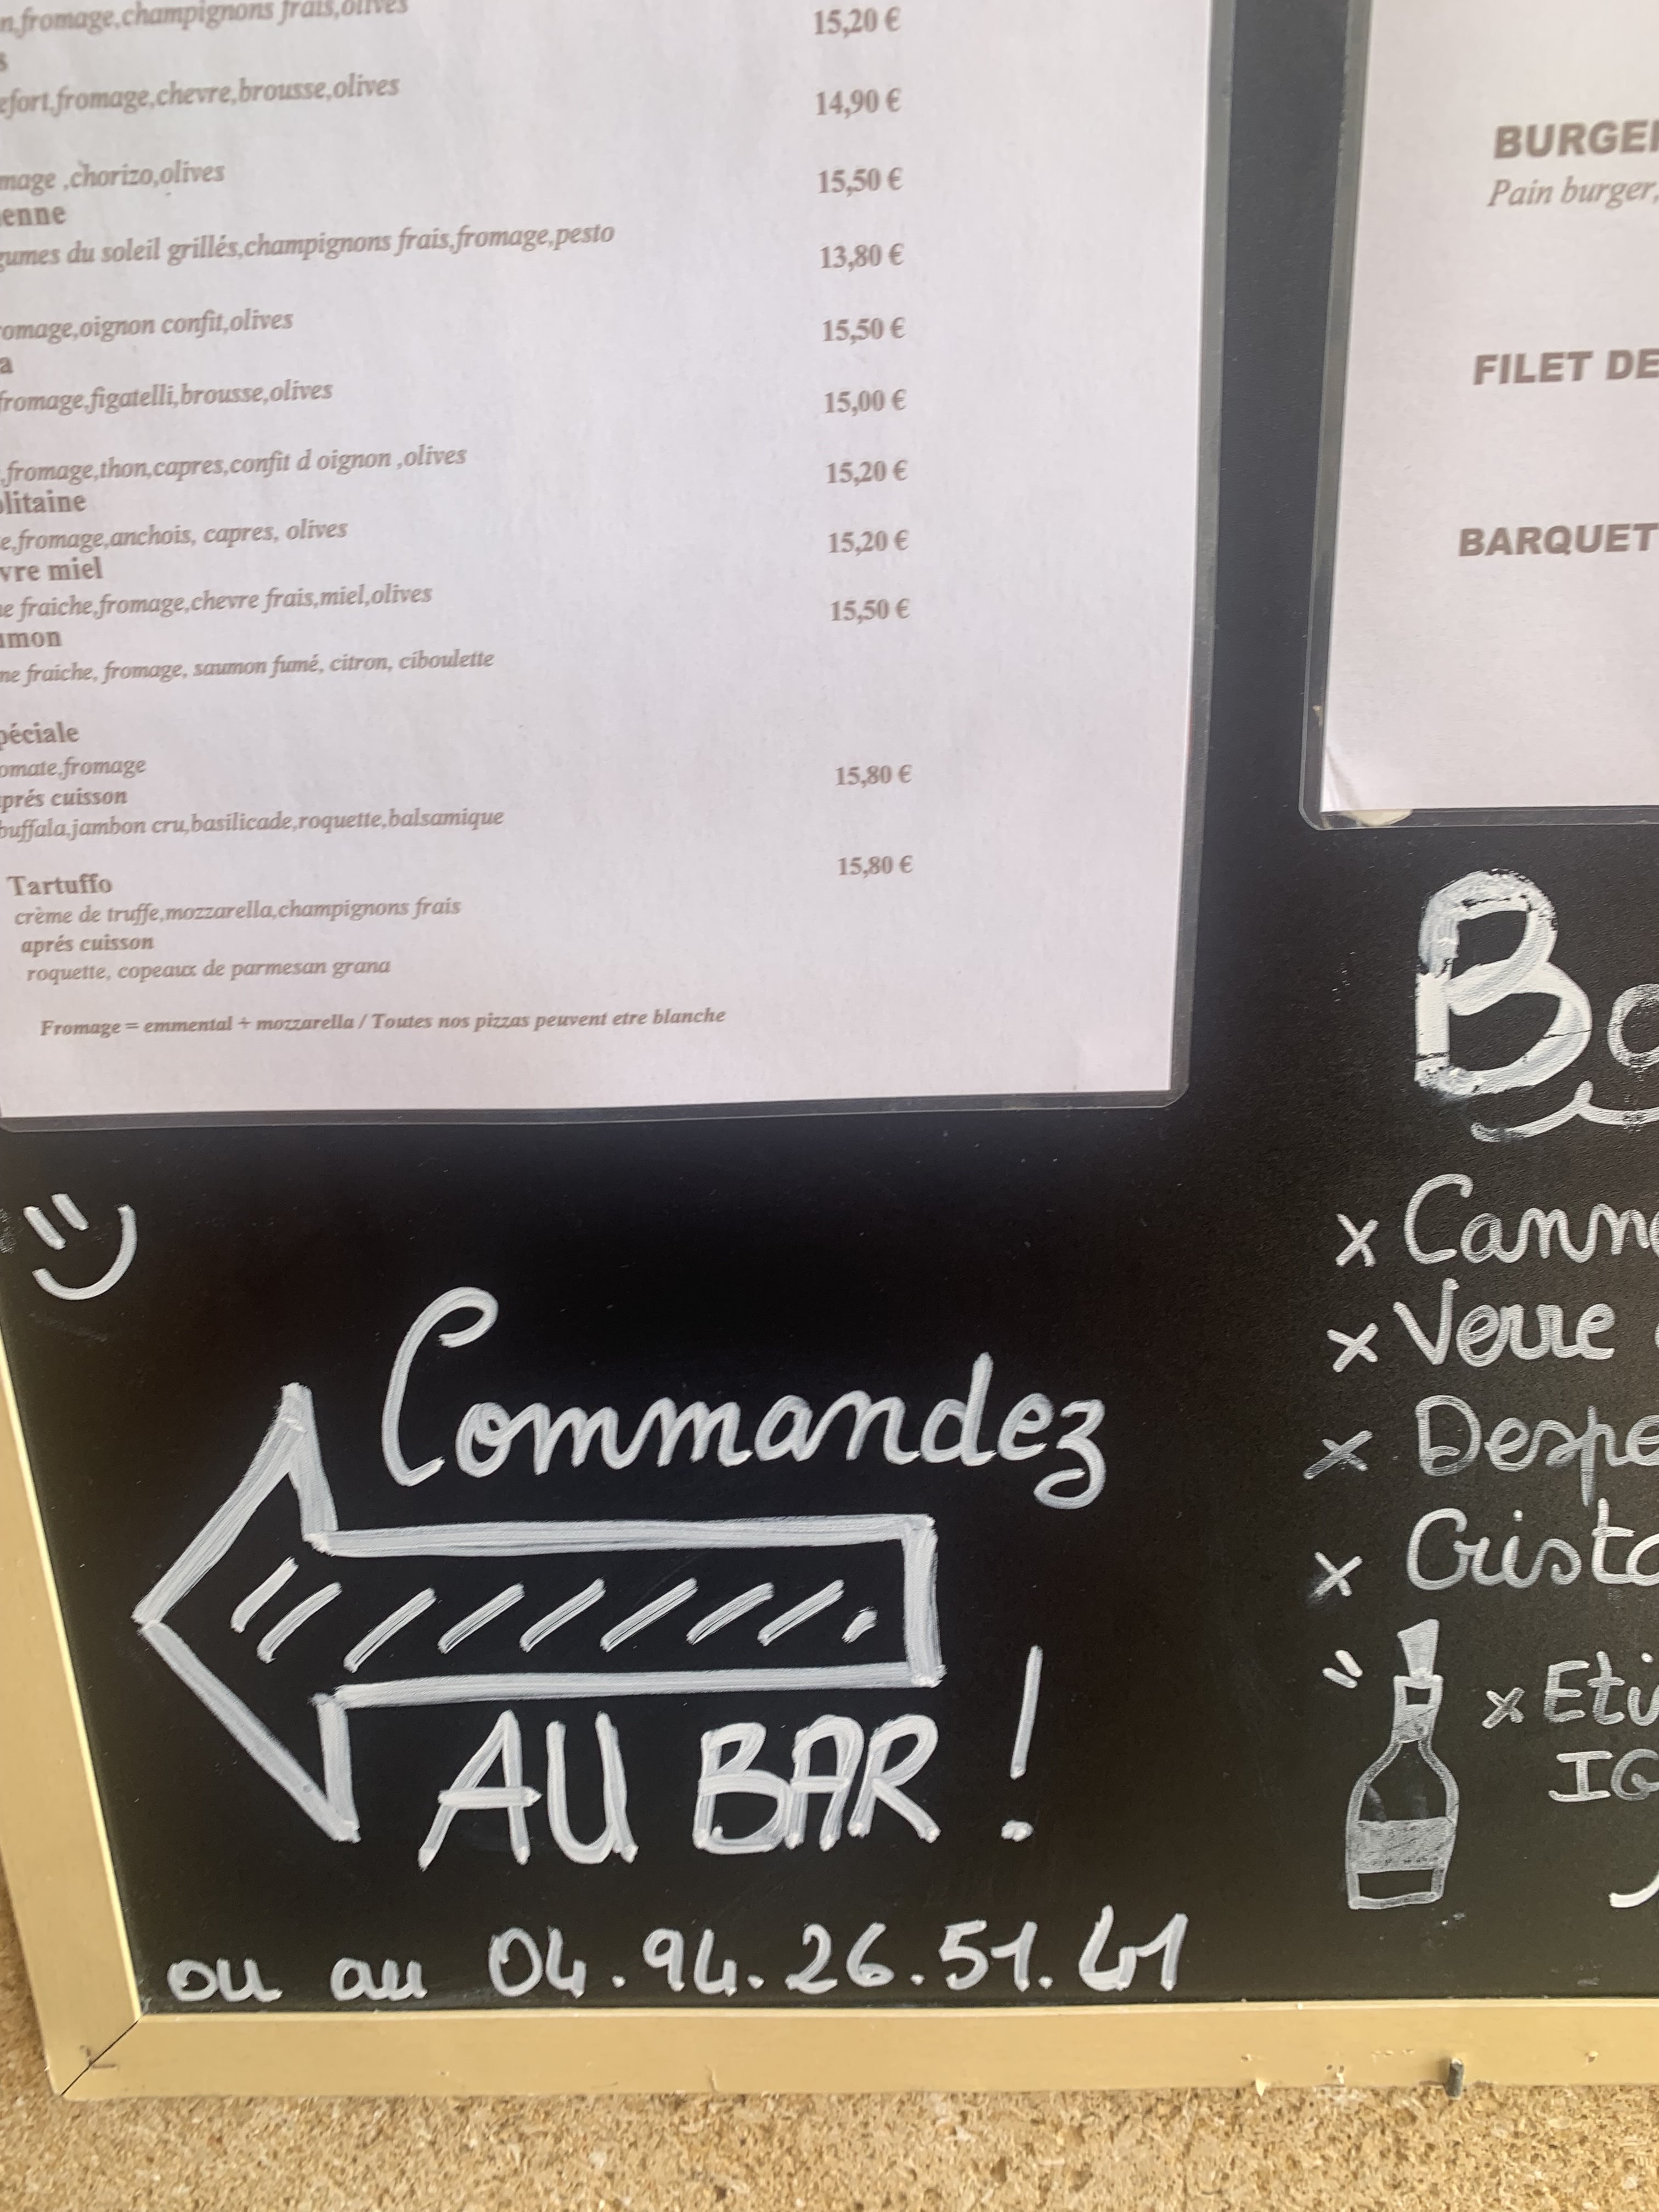 fromage,champignons frais,olives 15,20 €
fromage,chevre,brousse,olives 14,90 €
,chorizo,olives 15,50 €
du soleil grillés,champignons frais,fromage,pesto 13,80 €
oignon confit,olives 15,50 €
fromage,figatelli,brousse,olives 15,00 €
,fromage,thon,capres,confit d oignon ,olives 15,20 €
fromage,anchois, capres, olives 15,20 €
miel
fraiche,fromage,chevre frais,miel,olives 15,50 €
fraiche, fromage, saumon fumé, citron, ciboulette
fromage 15,80 €
cuisson
buffala,jambon cru,basilicade,roquette,balsamique
15,80 €
Tartuffo
crème de truffe,mozzarella,champignons frais
aprés cuisson
roquette, copeaux de parmesan grana
Fromage = emmental + mozzarella / Toutes nos pizzas peuvent etre blanche
Commandez
AU BAR !
ou au 04.94.26.51.41
BURGER
Pain burger,
FILET DE
BARQUET
Bo
x Cann
x Verre
x Despe
x Crista
x Eti
IG